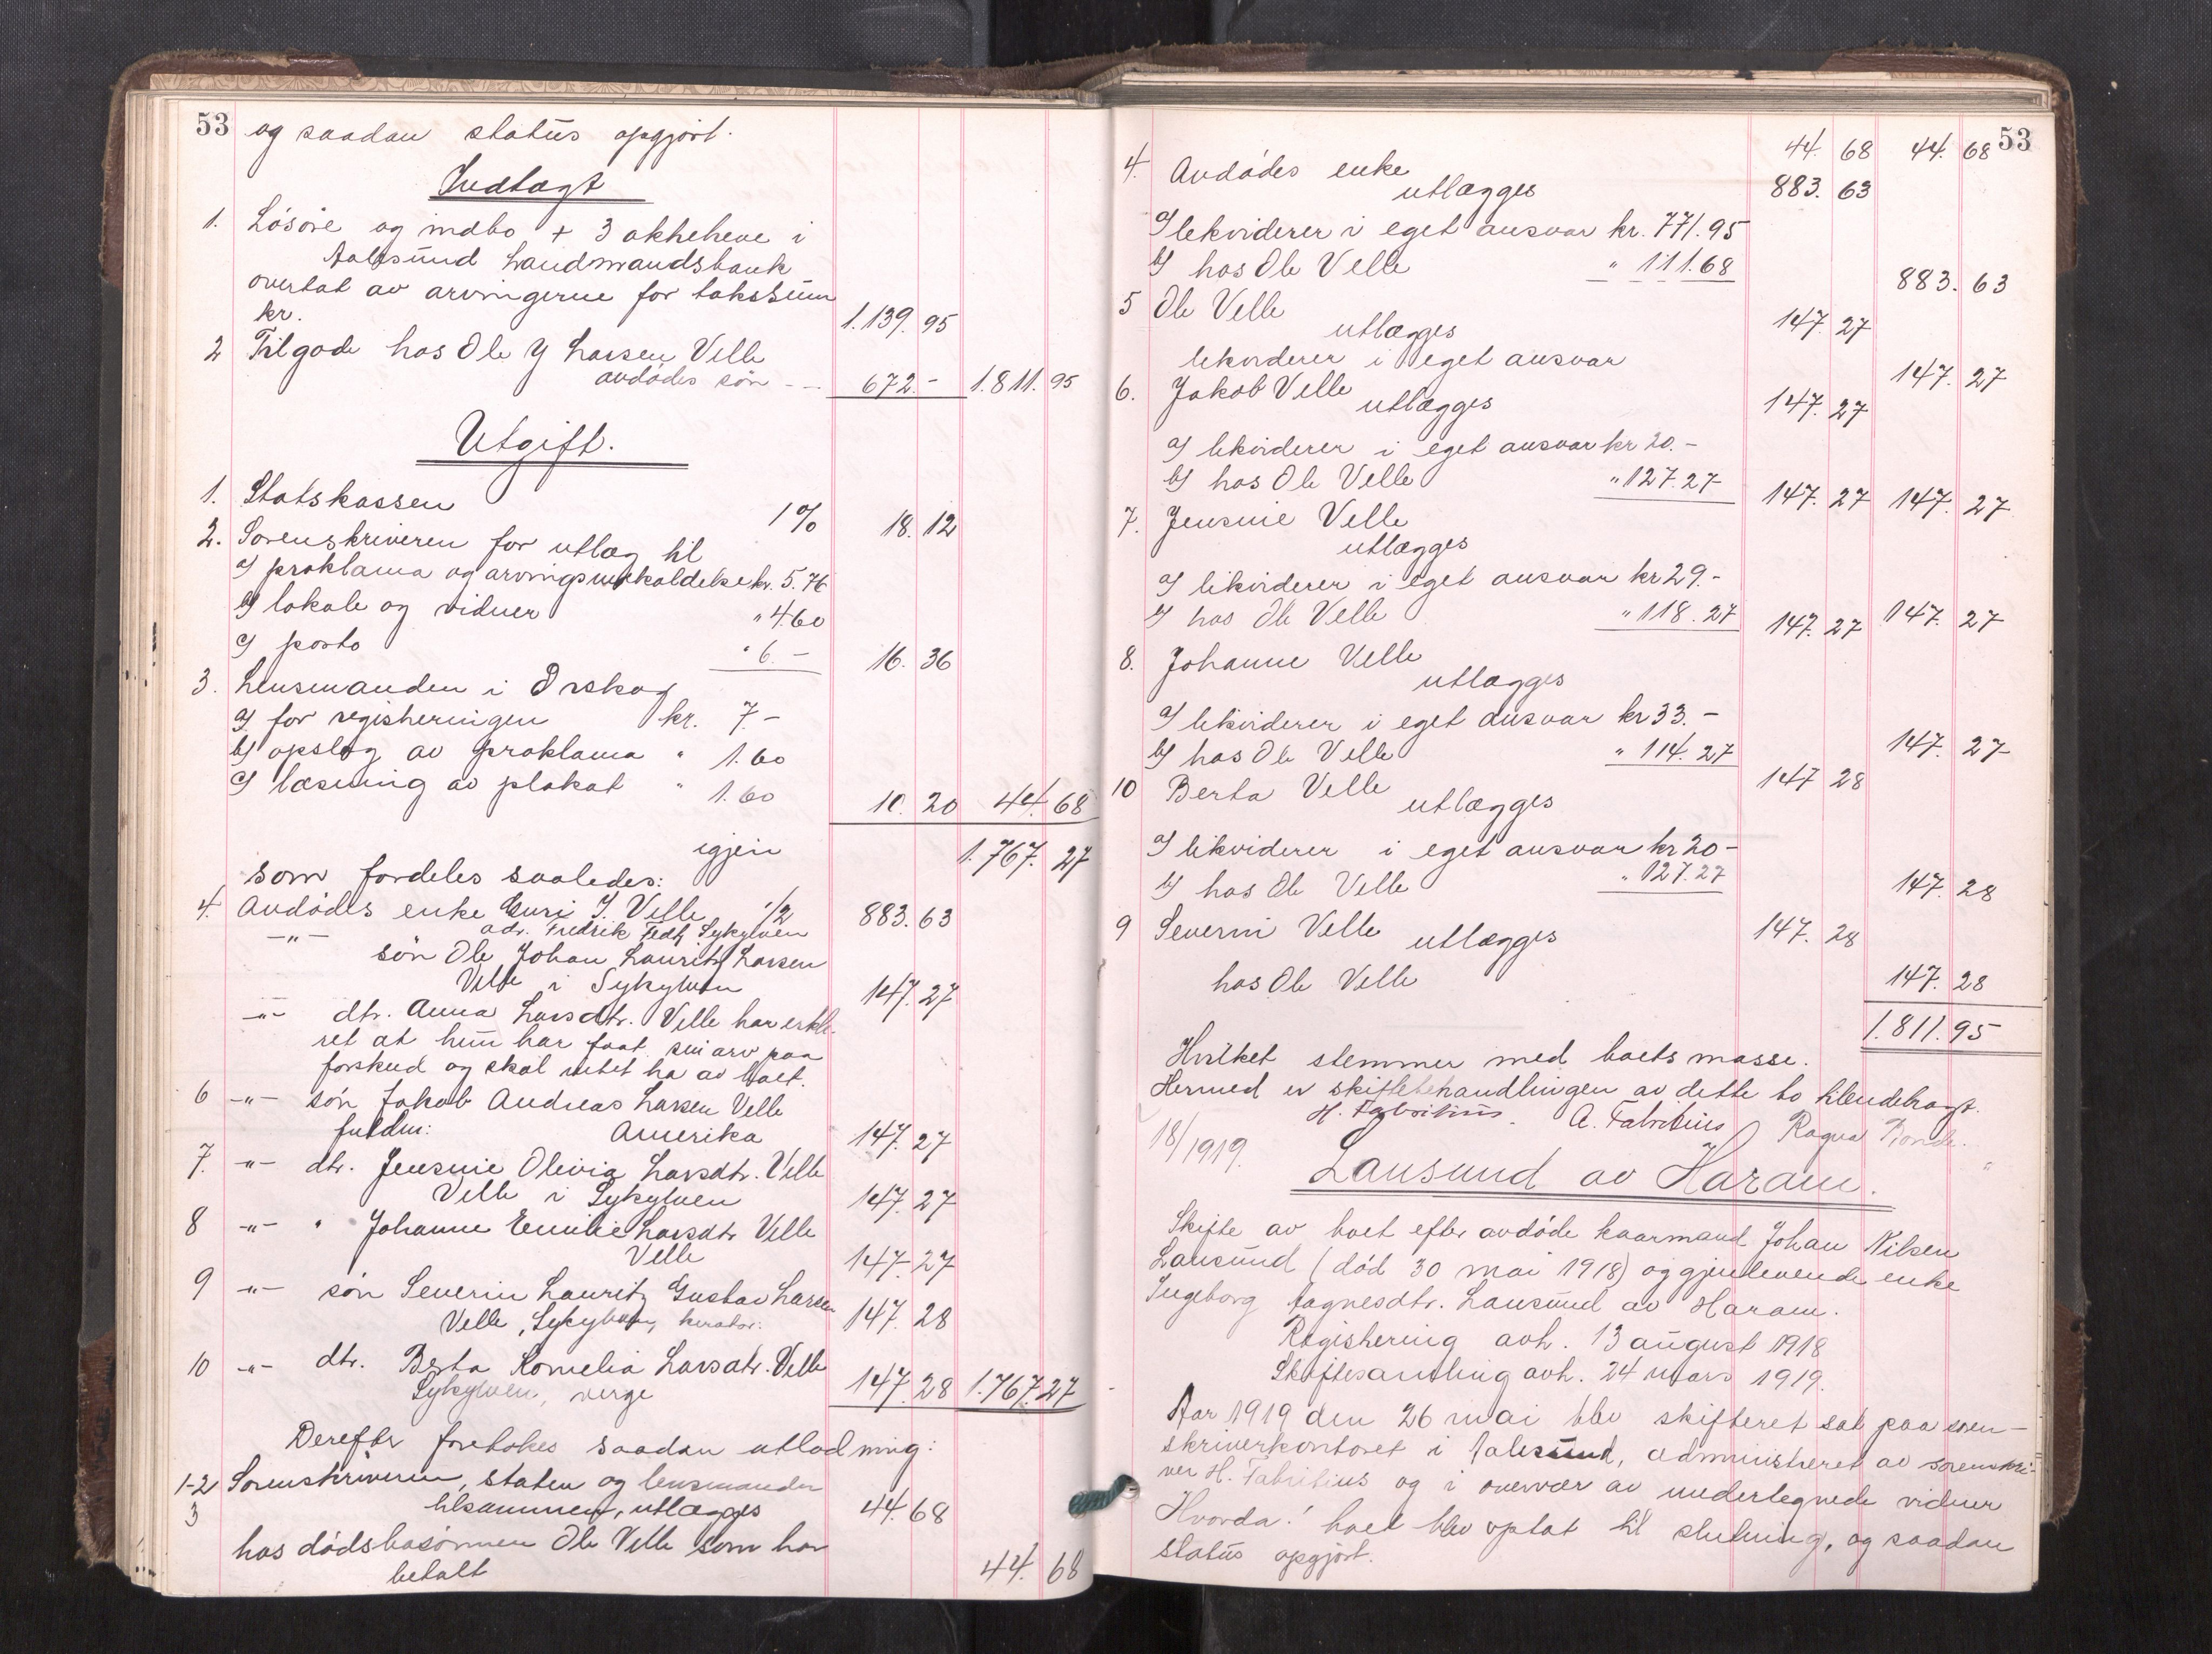 53 og saadan status opgjort.
Indtægt
1. Løsøre og indbo + 3 aktiebreve i
Aalesund Landmandsbank
overtat av arvingerne for takstsum
kr. 1.139. 95
2 Tilgode hos Ole J Larsen Velle
avdødes søn - - 672.- 1.811. 95
Utgift.
1. Statskassen 1% 18. 12
2. Sorenskriveren for utlæg til
a) proklama og arvingsindkaldelse kr. 5.76
b) lokale og vidner " 4.60
c) porto " 6. - 16. 36
3. Lensmanden i Ørskog
a) for registreringen kr. 7.-
b) opslag av proklama " 1.60
c) læsning av plakat " 1.60 10. 20 44. 68
igjen 1.767. 27
som fordeles saaledes:
4. Avdødes enke Guri J. Velle 1/2 883. 63
-"- adr. Fredrik Sykylven
søn Ole Johan Lauritz Larsen
Velle i Sykylven 147. 27
-"- dtr. Anna Larsdtr. Velle har erklæ-
ret at hun har faat sin arv paa
forskud og skal intet ha av boet.
6 -"- søn Jakob Andreas Larsen Velle
fuldm: Amerika 147. 27
7. -"- dtr. Jensine Olivia Larsdtr. Velle
Velle i Sykylven 147. 27
8 -"- " Johanne Emilie Larsdtr Velle
Velle 147. 27
9 -"- søn Severin Lauritz Gustav Larsen
Velle, Sykylven, kurator: 147. 28
10 -"- dtr. Berta Kornelia Larsdtr. Velle
Sykylven, verge 147. 28 1.767. 27
Derefter foretokes saadan utlodning:
1-2 Sorenskriveren, staten og lensmanden
3 tilsammen, utlægges 44. 68
hos dødsbosønnen Ole Velle som har
betalt 44. 68
44. 68 44. 68 53
4. Avdødes enke
utlægges 883. 63
a) likviderer i eget ansvar kr. 771.95
b) hos Ole Velle " 111.68 883. 63
5 Ole Velle
utlægges 147. 27
likviderer i eget ansvar 147. 27
6. Jakob Velle
utlægges 147. 27
a) likviderer i eget ansvar kr 20.-
b) hos Ole Velle " 127.27 147. 27
7. Jensine Velle 147. 27
utlægges
a) likviderer i eget ansvar kr 29.-
b) hos Ole Velle " 118.27 147. 27
8. Johanne Velle 147. 27
utlægges
a) likviderer i eget ansvar kr 33.-
b) hos Ole Velle " 114.27 147. 27
10 Berta Velle 147 28
utlægges
a) likviderer i eget ansvar kr 20-
b) hos Ole Velle " 127.27 147. 28
9 Severin Velle utlægges 147. 28
hos Ole Velle 147. 28
1.811. 95
Hvilket stemmer med boets masse.
Hermed er skiftebehandlingen av dette bo tilendebragt.
H. Fabritius. A. Fabritius Ragna
18/1919.
Lausund av Haram.
Skifte av boet efter avdøde kaarmand Johan Nilsen
Lausund (død 30 mai 1918) og gjenlevende enke
Ingeborg Aagnesdtr. Lausund av Haram.
Registrering avh. 13 august 1918
Skiftesamling avh. 24 mars 1919.
Aar 1919 den 26 mai blev skifteret sat paa soren-
skriverkontoret i Aalesund, administreret av sorenskri-
ver H. Fabritius og i overvær av undertegnede vidner
Hvorda! boet blev optat til slutning, og saadan
status opgjort.